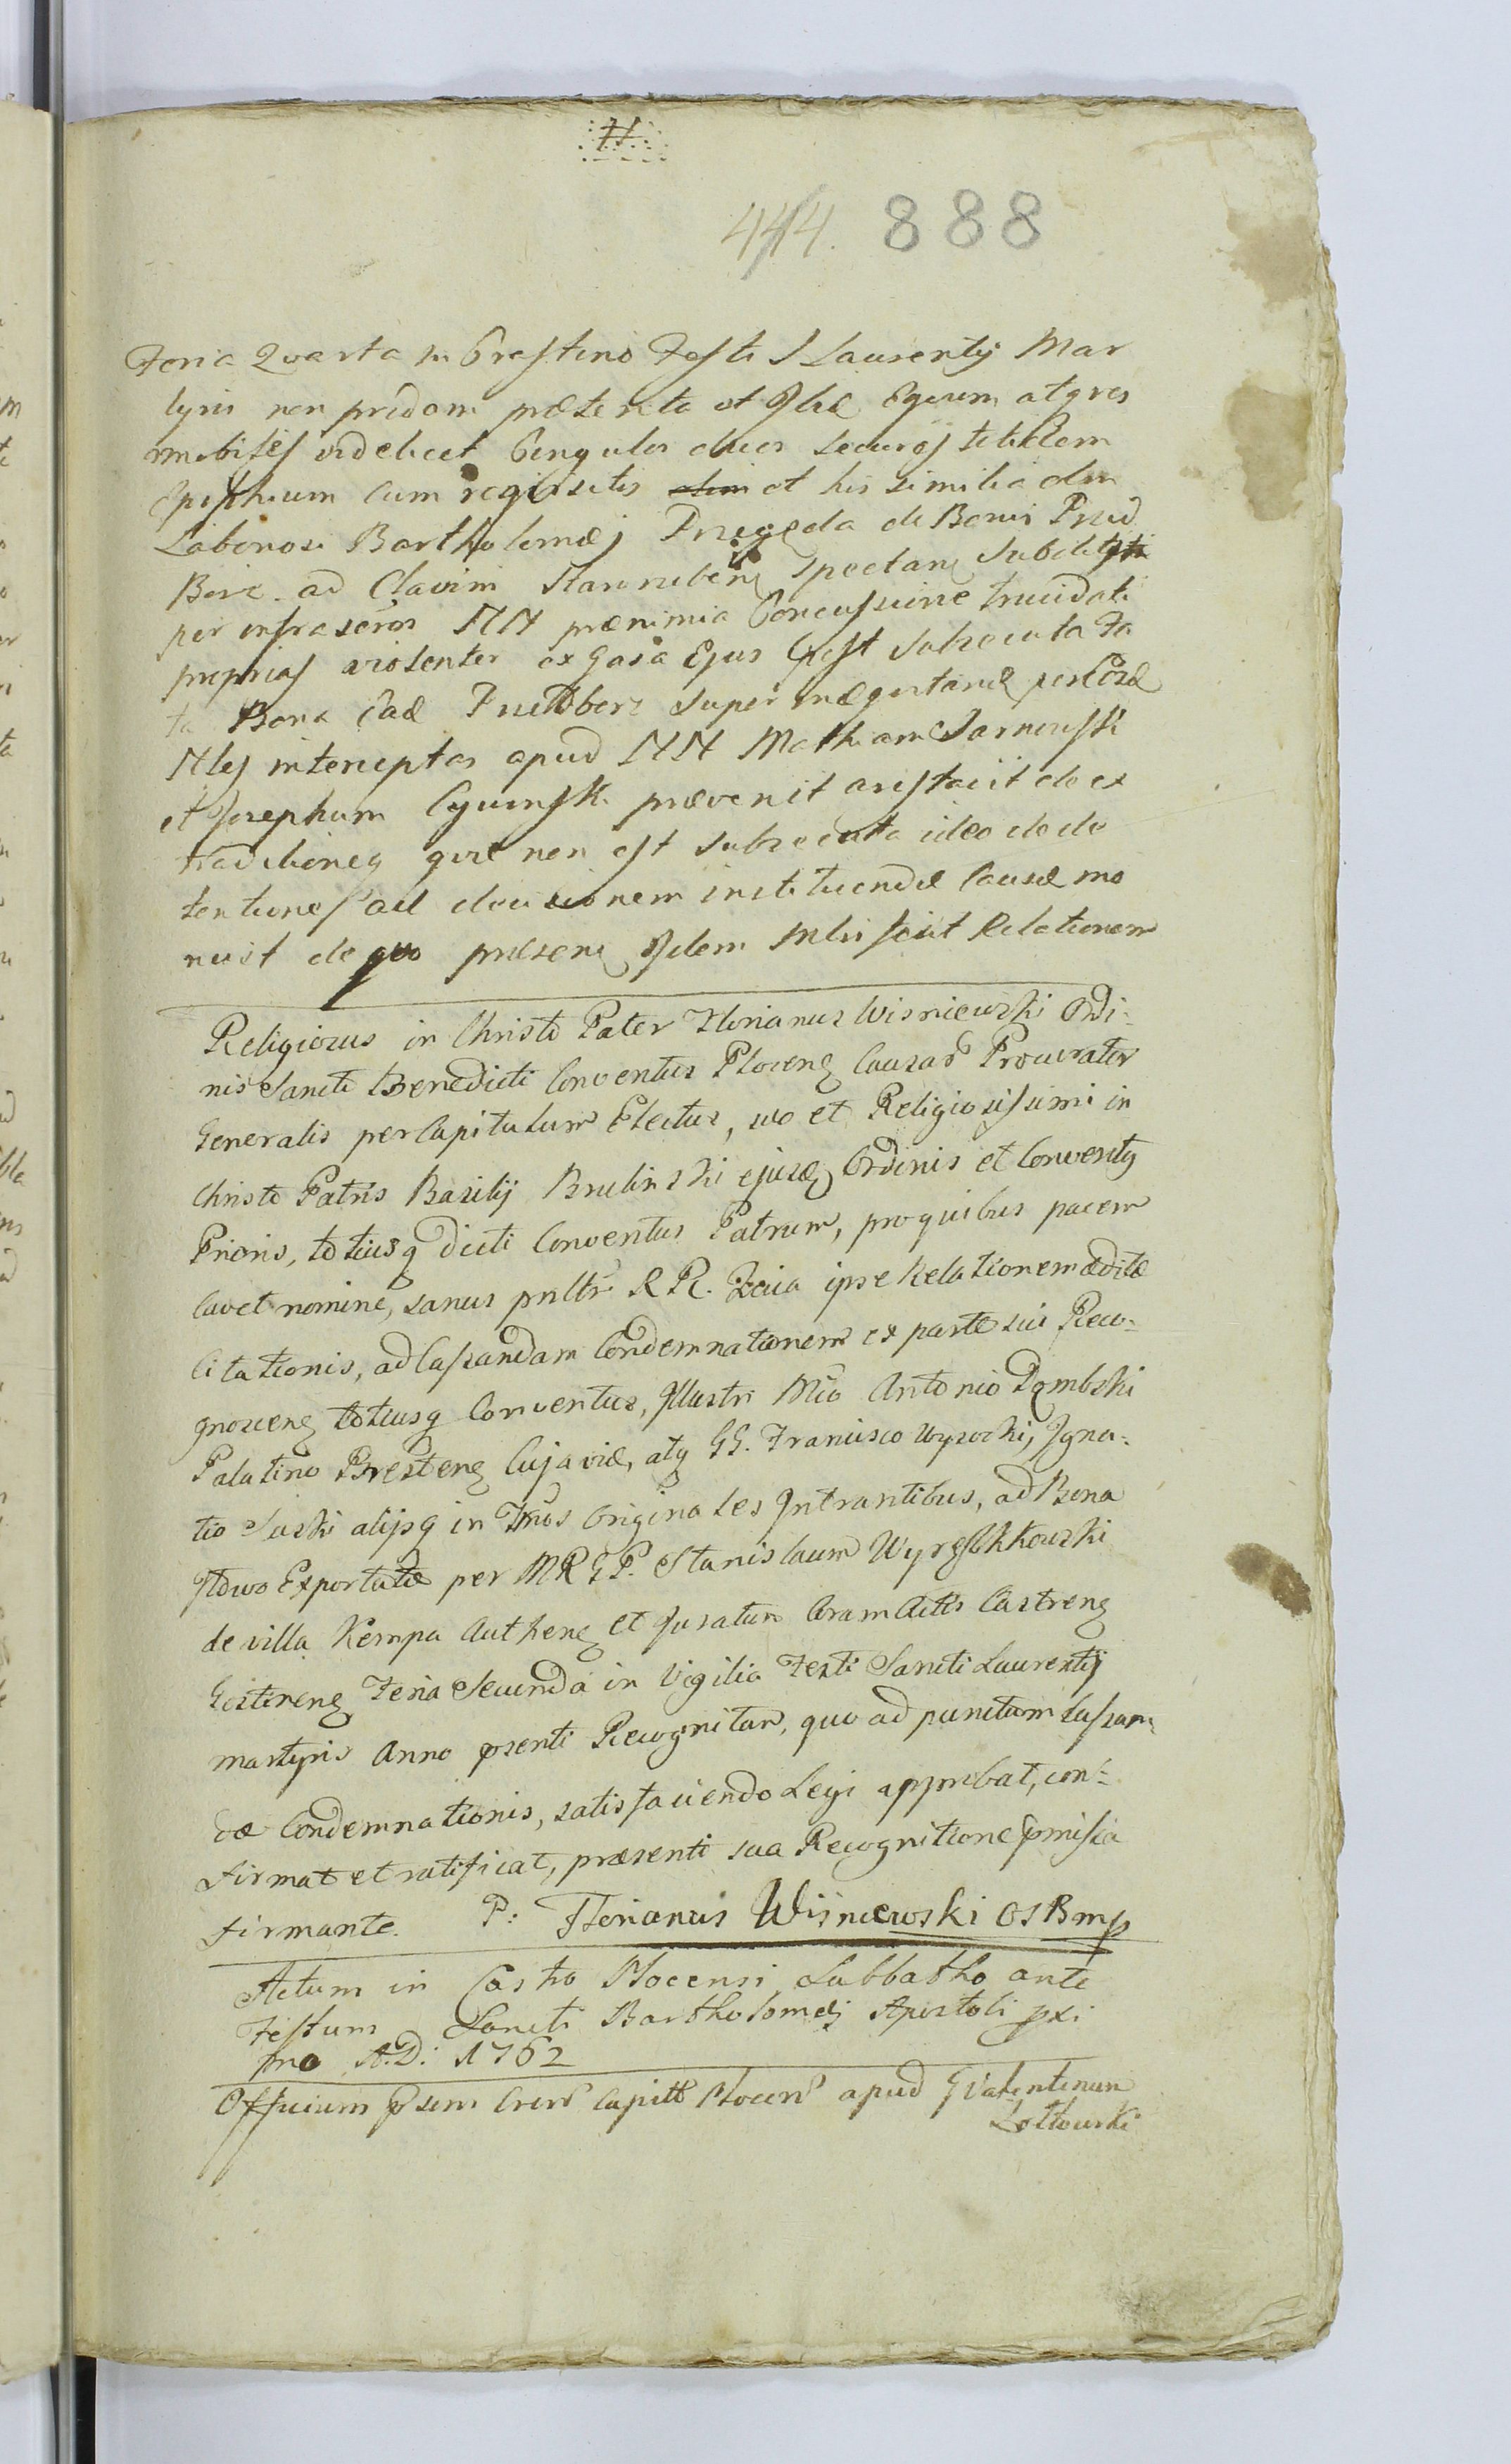 444. 888
Feria Quarta in Crastino Festi S Laurentij Mar
tyris non pridem præterita et Equum atq res
mobiles videlicet Cingulos duos secures
Epiphium cum reqvisitis et his similia olim
Laboriosi Bartholomæj de Bonis Przed
Borz. ad Clavim spectan subditi
per infra seros NN prænimia Concussione trucidati
proprias violenter ex Casa Ejus post subsecuta Fa
ta Bona Ead Przedborz super
Nles interceptos apud NN Mathiam Sarnowski
et Josephum prævenit arestavit de ex
traditioneq quæ non est subsecuta ideo de de
tentione ad decisionem instituendæ Causæ mo
nuit de quo præsens Idem Mlri fecit Relationem
Religiosus in Christo Pater Florianus Wisniewski Ordi-
nis Sancti Benedicti Conventus Plocenę Causar Procurator
Generalis per Capitulum Electus, suo et Religiosissimi in
Christo Patris Basilij Brulinski ejusdę Ordinis et Conventq
Prioris, totiusq dicti Conventus Patrum, pro quibus pacem
cavet nomine, sanus pnltr R R. ipse Relationem æditæ
Citationis, ad Cassandam Condemnationem ex parte sui Reco-
gnoscenę totiusq Conventus, Illustri Mco Antonio Dąmbski
Palatino Brestenę Cujaviæ, atq GG. Francisco Wysocki, Igna-
tio Suski alijsq in Tnos Originales Intrantibus, ad Bona
Itowo Exportatæ per MRGP. Stanislaum
de villa Kempa Authenę et Juratum Coram Actis Castrenę
Gostinenę Feria Secunda in Vigilia Festi Sancti Laurentij
martyris Anno pręsenti Recognitam, quo ad punctum Cassan-
dæ Condemnationis, satisfaciendo Legi approbat, con-
firmat et ratificat, præsenti sua Recognitione præmissa
firmante. P: Florianus Wisniewski OSBmp
Actum in Castro Plocensi Sabbatho ante
Festum Sancti Bartholomæj Apostoli pxi
mo A.D: 1762
Officium psens Crens Capitle Plocen apud G Valentinum
Zółtowski